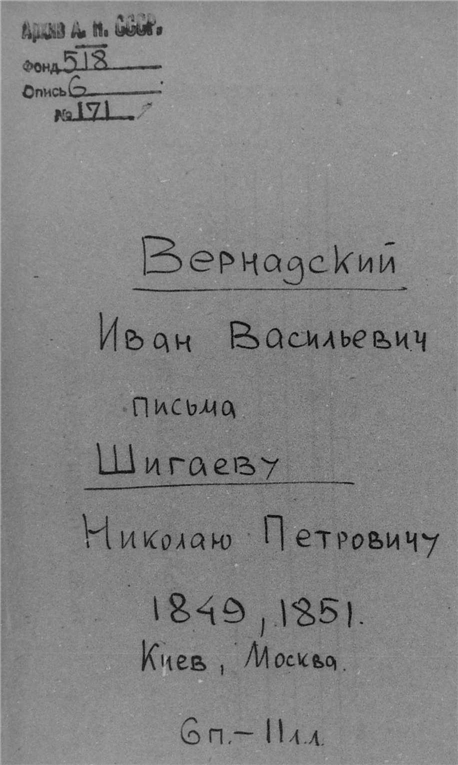 Архив А. Н. СССР.
Фонд 518
Опись 6
№ 171
Вернадский
Иван Васильевич
письма
Шигаеву
Николаю Петровичу
1849, 1851.
Киев, Москва.
6п.–11лл.